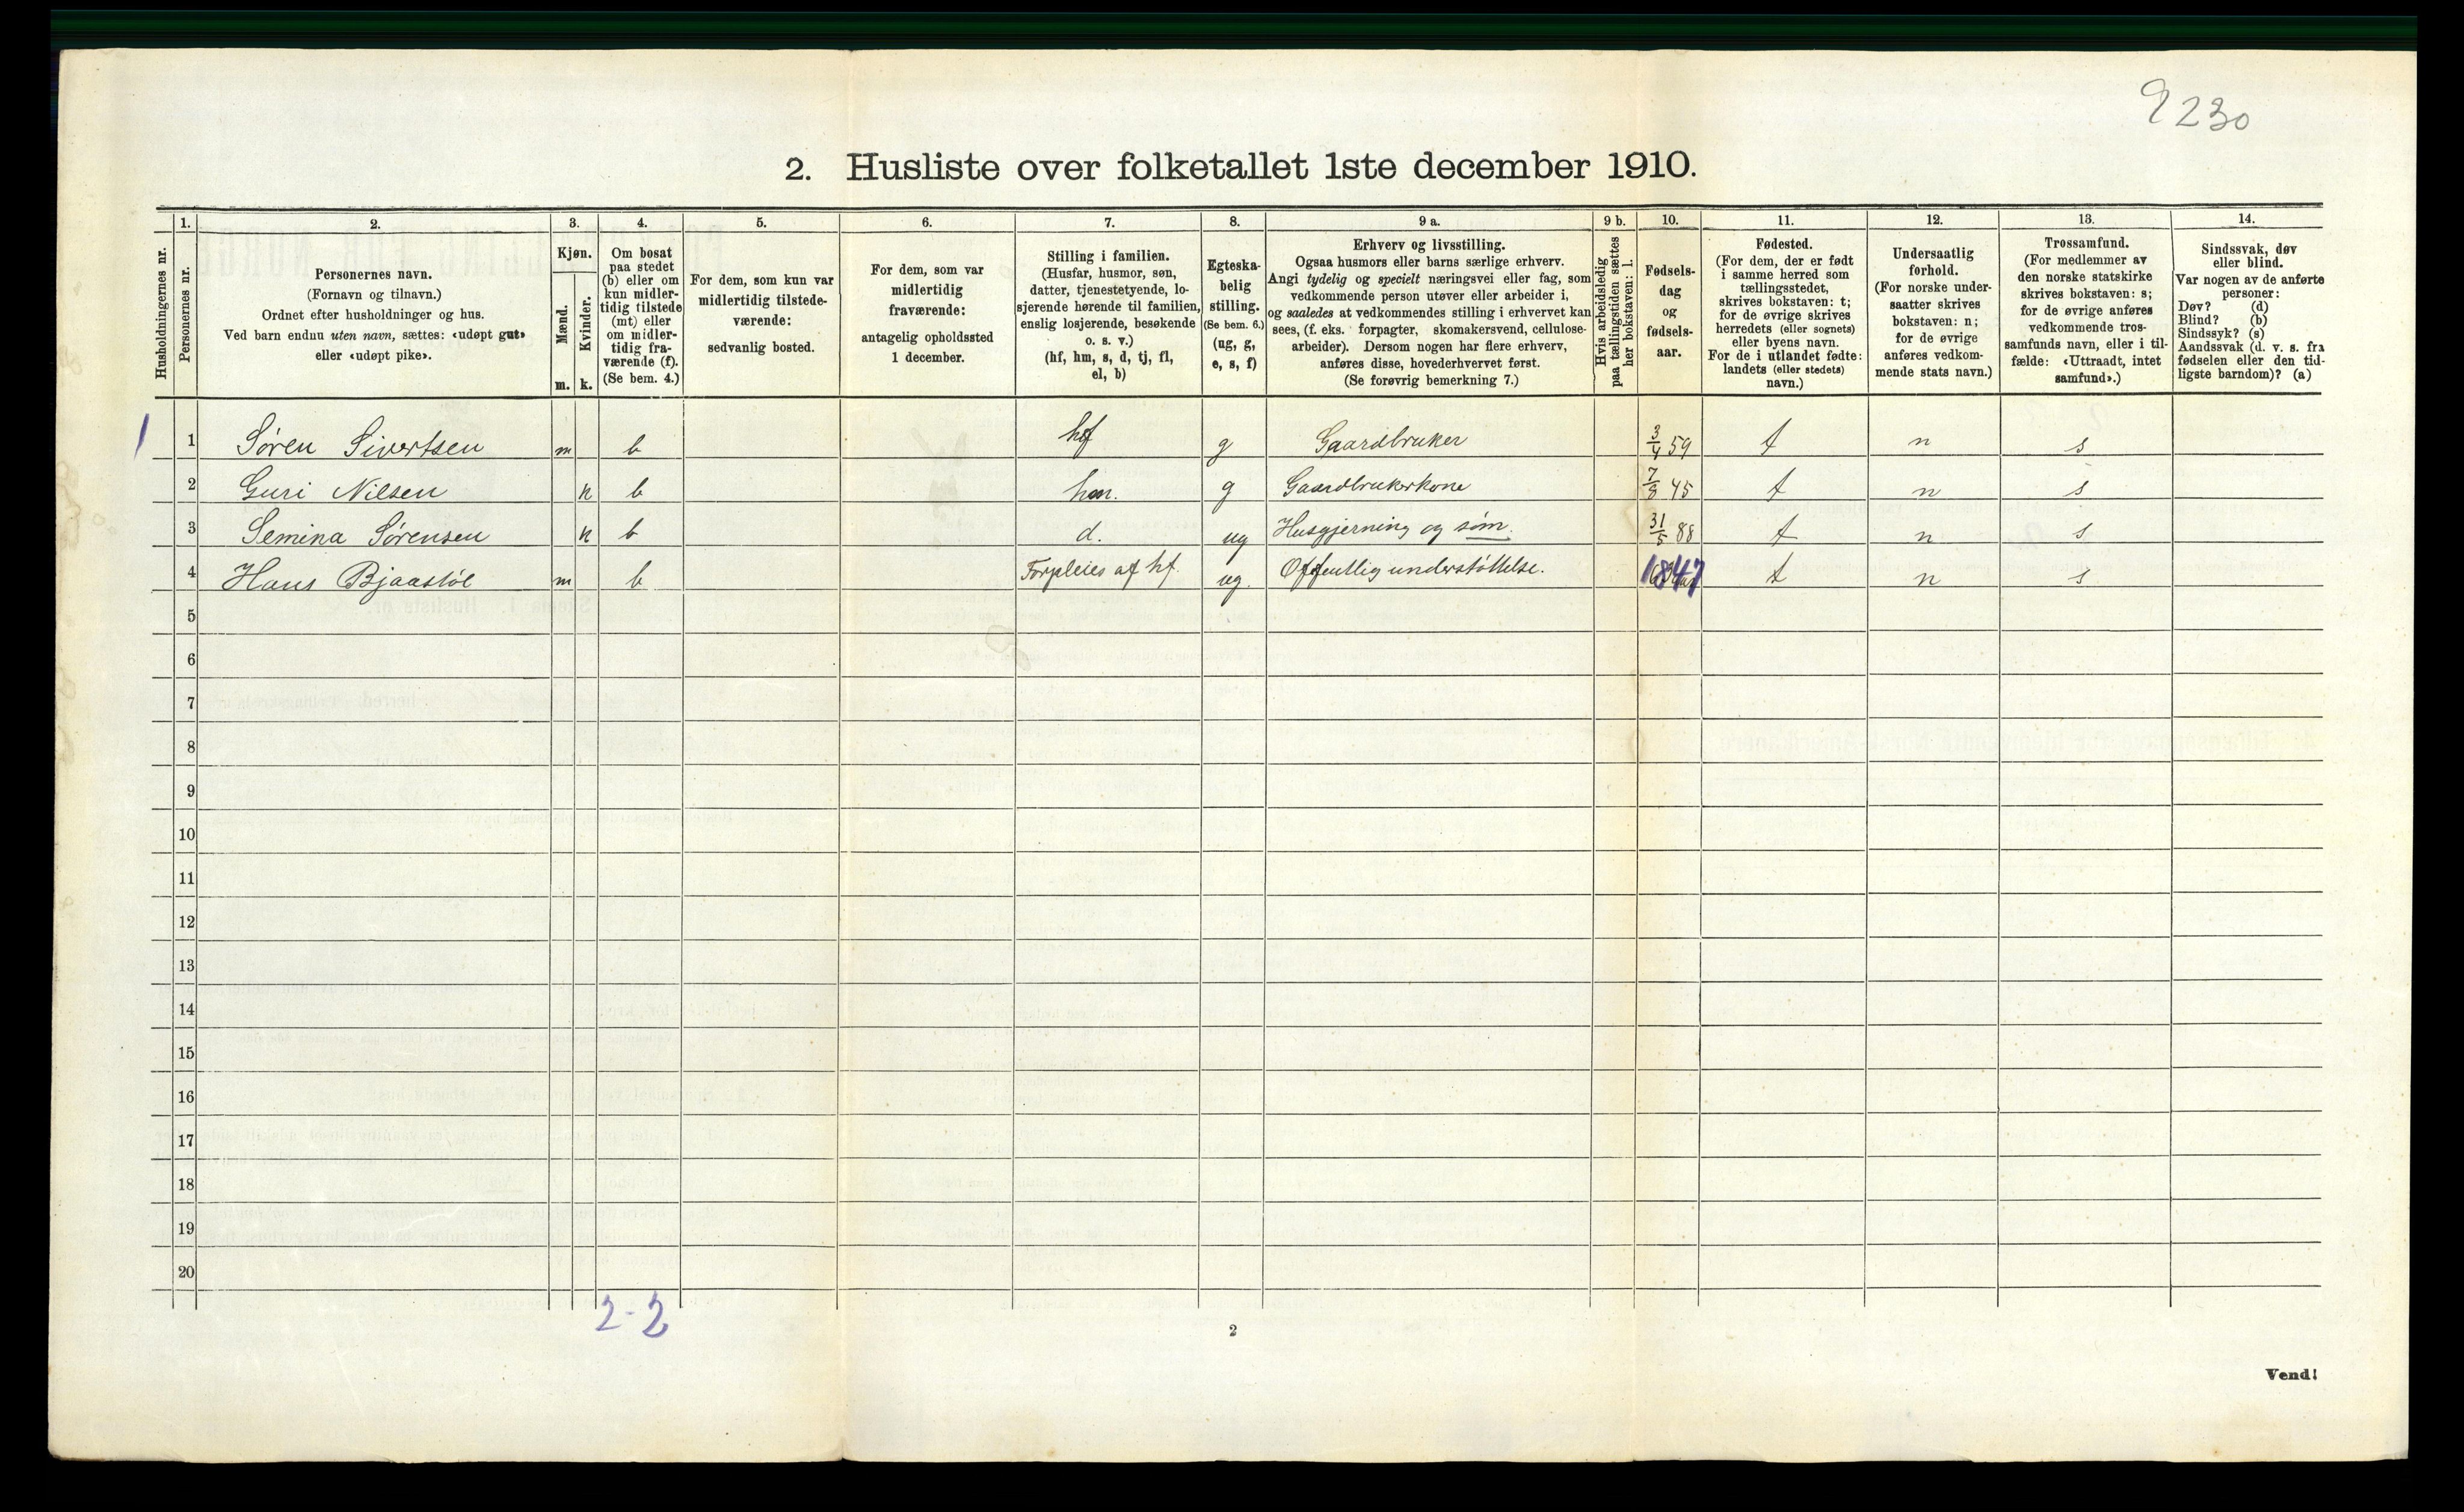 9230
2. Husliste over folketallet 1ste december 1910.
Husholdningernes nr.
1.
Personernes nr.
2.
Personernes navn.
(Fornavn og tilnavn.)
Ordnet efter husholdninger og hus.
Ved barn endnu uten navn, sættes: «udøpt gut»
eller «udøpt pike».
3.
Kjøn.
Mænd.
m.
Kvinder.
k.
4.
Om bosat
paa stedet
(b) eller om
kun midler-
tidig tilstede
(mt) eller
om midler-
tidig fra-
værende (f).
(Se bem. 4.)
5.
For dem, som kun var
midlertidig tilstede-
værende:
sedvanlig bosted.
6.
For dem, som var
midlertidig
fraværende:
antagelig opholdssted
1 december.
7.
Stilling i familien.
(Husfar, husmor, søn,
datter, tjenestetyende, lo-
sjerende hørende til familien,
enslig losjerende, besøkende
o. s. v.)
(hf, hm, s, d, tj, fl,
el, b)
8.
Egteska-
belig
stilling.
(Se bem. 6.)
(ug, g,
e, s, f)
9 a.
Erhverv og livsstilling.
Ogsaa husmors eller barns særlige erhverv.
Angi tydelig og specielt næringsvei eller fag, som
vedkommende person utøver eller arbeider i,
og saaledes at vedkommendes stilling i erhvervet kan
sees, (f. eks. forpagter, skomakersvend, cellulose-
arbeider). Dersom nogen har flere erhverv,
anføres disse, hovederhvervet først.
(Se forøvrig bemerkning 7.)
9 b.
Hvis arbeidsledig
paa tællingstiden sættes
her bokstaven: l.
10.
Fødsels-
dag
og
fødsels-
aar.
11.
Fødested.
(For dem, der er født
i samme herred som
tællingsstedet,
skrives bokstaven: t;
for de øvrige skrives
herredets (eller sognets)
eller byens navn.
For de i utlandet fødte:
landets (eller stedets)
navn.)
12.
Undersaatlig
forhold.
(For norske under-
saatter skrives
bokstaven: n;
for de øvrige
anføres vedkom-
mende stats navn.)
13.
Trossamfund.
(For medlemmer av
den norske statskirke
skrives bokstaven: s;
for de øvrige anføres
vedkommende tros-
samfunds navn, eller i til-
fælde: «Uttraadt, intet
samfund».)
14.
Sindssvak, døv
eller blind.
Var nogen av de anførte
personer:
Døv? (d)
Blind? (b)
Sindssyk? (s)
Aandssvak (d. v. s. fra
fødselen eller den tid-
ligste barndom)? (a)
1 1 Søren Sivertsen m b hf g Gaardbruker 3/4 59 t n s
2 Guri Nilsen k b hm. g Gaardbrukerkone 7/9 45 t n s
3 Semina Sørensen k b d. ug Husgjerning og søm. 31/5 88 t n s
4 Hans Bjaastøl m b Forpleies af hf. ug. Offentlig understøttelse. 1847 t n s
5
6
7
8
9
10
11
12
13
14
15
16
17
18
19
20
2-2
2
Vend!